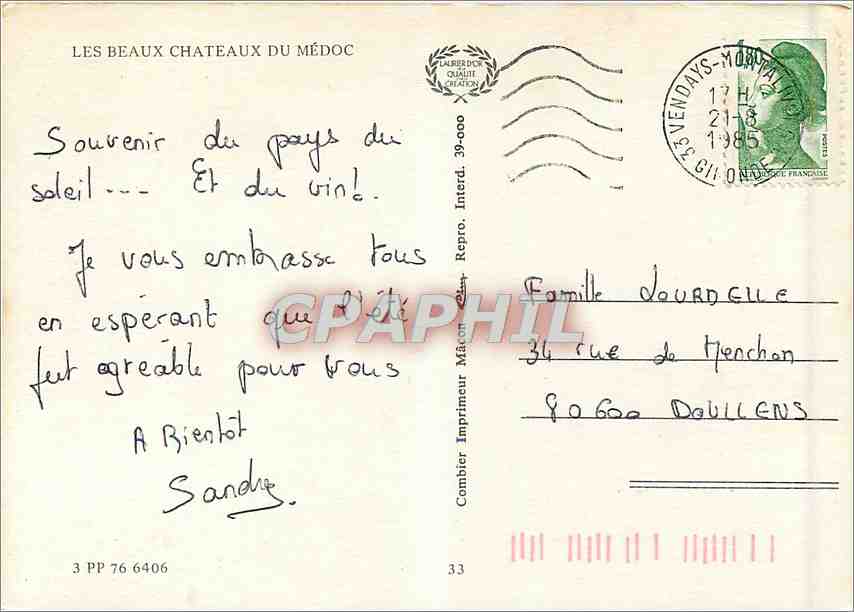 LES BEAUX CHATEAUX DU MÉDOC
Souvenir du pays du
soleil --- Et du vin!.
Je vous embrasse tous
en espérant que l'été
fut agréable pour vous
A Bientôt
3 PP 76 6406
33
Combier Imprimeur Mâcon Repro. Interd. 39-000
LAURIER D'OR
DE LA
QUALITÉ
CREATION
33 VENDAYS-MONTALIVET
17H
21-8
1985
GIRONDE
1,80
POSTES
REPUBLIQUE FRANÇAISE
Famille LOURDELLE
34 rue de Menchon
80600 DOULLENS
CPAPHIL